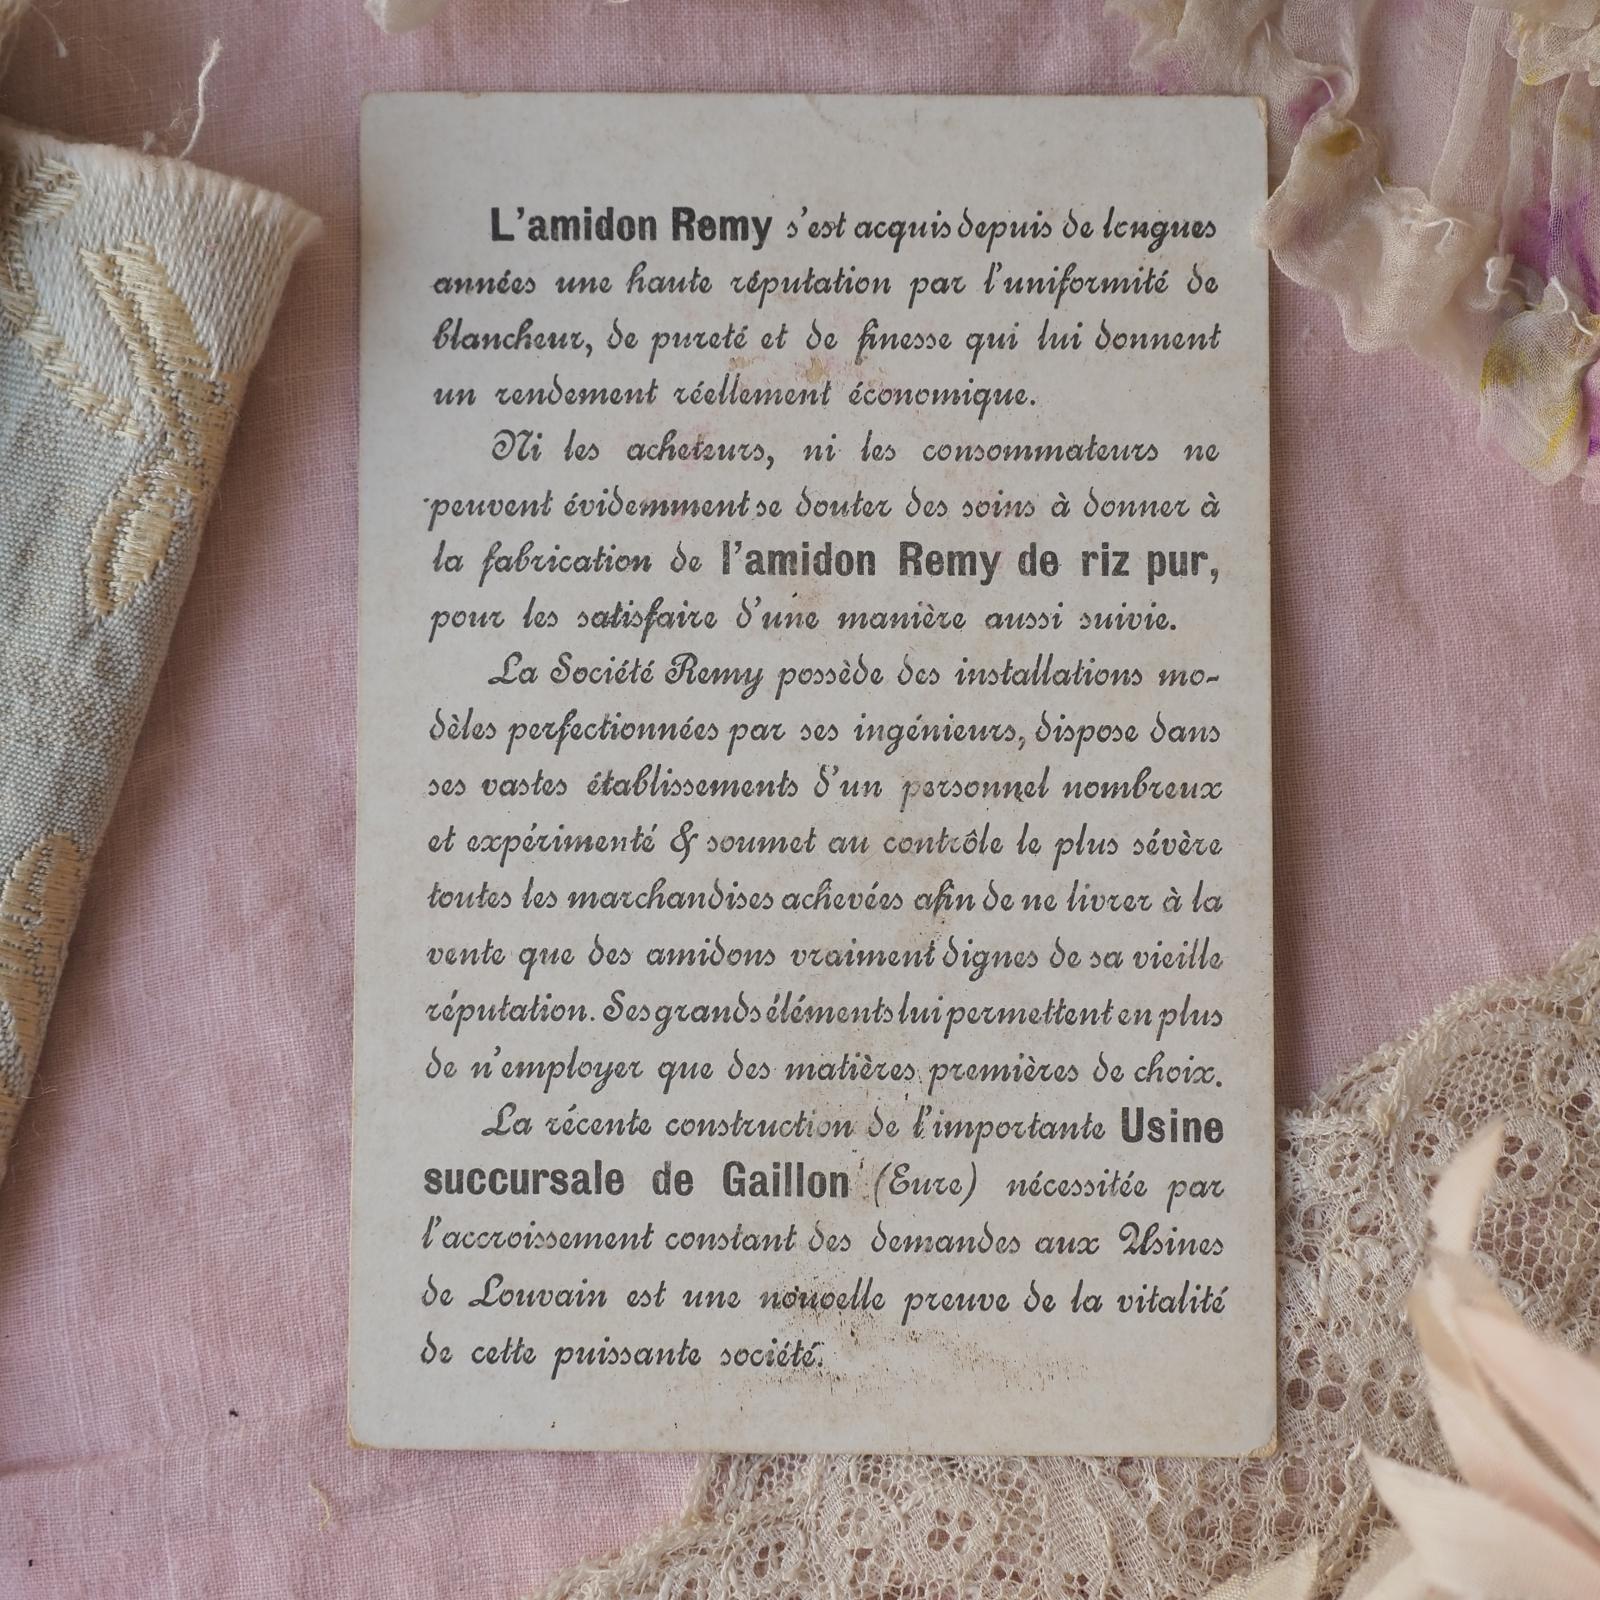 L'amidon Remy s'est acquis depuis de longues
années une haute réputation par l'uniformité de
blancheur, de pureté et de finesse qui lui donnent
un rendement réellement économique.
Ni les acheteurs, ni les consommateurs ne
peuvent évidemment se douter des soins à donner à
la fabrication de l'amidon Remy de riz pur,
pour les satisfaire d'une manière aussi suivie.
La Société Remy possède des installations mo-
dèles perfectionnées par ses ingénieurs, dispose dans
ses vastes établissements d'un personnel nombreux
et expérimenté & soumet au contrôle le plus sévère
toutes les marchandises achevées afin de ne livrer à la
vente que des amidons vraiment dignes de sa vieille
réputation. Ses grands éléments lui permettent en plus
de n'employer que des matières premières de choix.
La récente construction de l'importante Usine
succursale de Gaillon (Eure) nécessitée par
l'accroissement constant des demandes aux Usines
de Louvain est une nouvelle preuve de la vitalité
de cette puissante société.